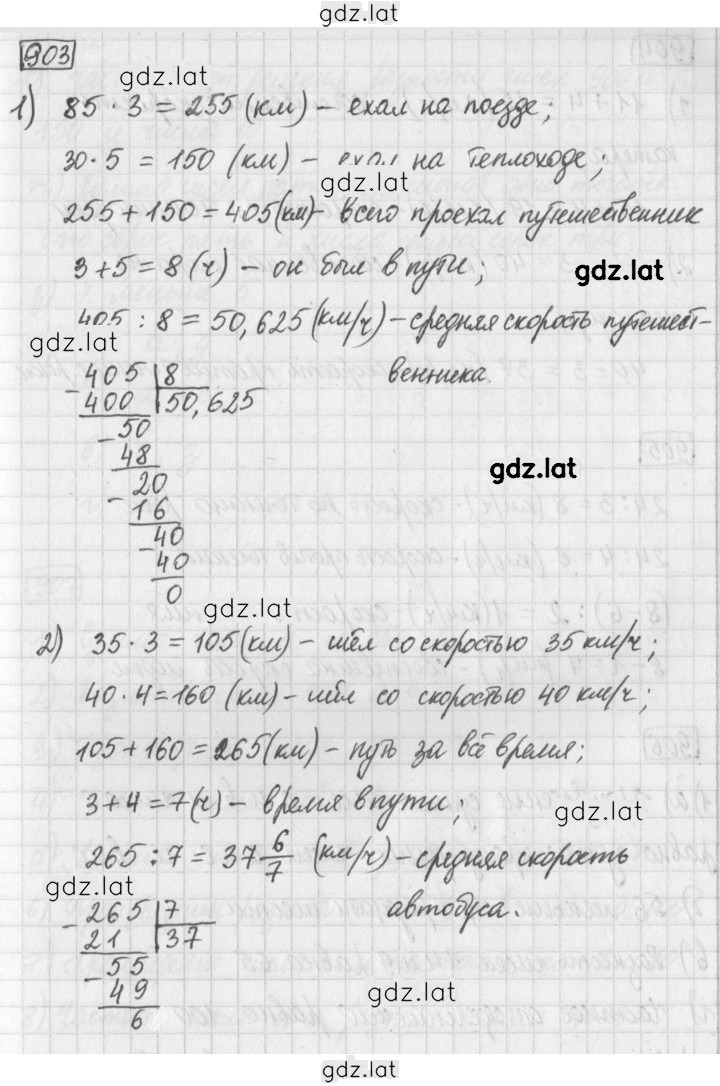 gdz.lat
903
gdz.lat
1) 85 · 3 = 255 (км) – ехал на поезде;
30 · 5 = 150 (км) – ехал на теплоходе;
gdz.lat
255 + 150 = 405 (км) – всего проехал путешественник
3 + 5 = 8 (ч) – он был в пути;
gdz.lat
405 : 8 = 50,625 (км/ч) – средняя скорость путешест-
gdz.lat
венника.
- 405 | 8
400 | 50,625
- 50
48
gdz.lat
- 20
16
- 40
40
0
gdz.lat
2) 35 · 3 = 105 (км) – шёл со скоростью 35 км/ч;
40 · 4 = 160 (км) – шёл со скоростью 40 км/ч;
105 + 160 = 265 (км) – путь за всё время;
3 + 4 = 7 (ч) – время в пути;
gdz.lat
265 : 7 = 37 6/7 (км/ч) – средняя скорость
gdz.lat
автобуса.
- 265 | 7
21 | 37
- 55
49
gdz.lat
6
gdz.lat